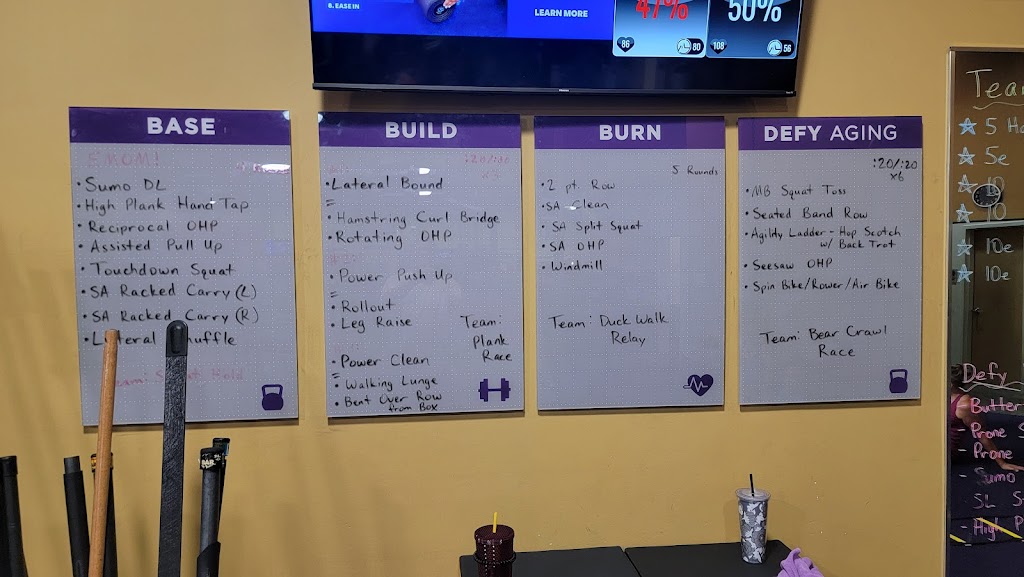 8. EASE IN
LEARN MORE
47%
50%
86
80
108
56
BASE
EMOM!
• Sumo DL
• High Plank Hand Tap
• Reciprocal OHP
• Assisted Pull Up
• Touchdown Squat
• SA Racked Carry (L)
• SA Racked Carry (R)
• Lateral Shuffle
Team: Squat Hold
BUILD
:20/:30
x3
• Lateral Bound
=
• Hamstring Curl Bridge
• Rotating OHP
• Power Push Up
=
• Rollout
• Leg Raise
Team:
Plank
Race
• Power Clean
=
• Walking Lunge
• Bent Over Row
from Box
BURN
5 Rounds
• 2 pt. Row
• SA Clean
• SA Split Squat
• SA OHP
• Windmill
Team: Duck Walk
Relay
DEFY AGING
:20/:20
x6
• MB Squat Toss
• Seated Band Row
• Agility Ladder - Hop Scotch
w/ Back Trot
• Seesaw OHP
• Spin Bike/Rower/Air Bike
Team: Bear Crawl
Race
5
5e
10
10
10e
10e
Defy
- Prone
- Prone
- Sumo
SL